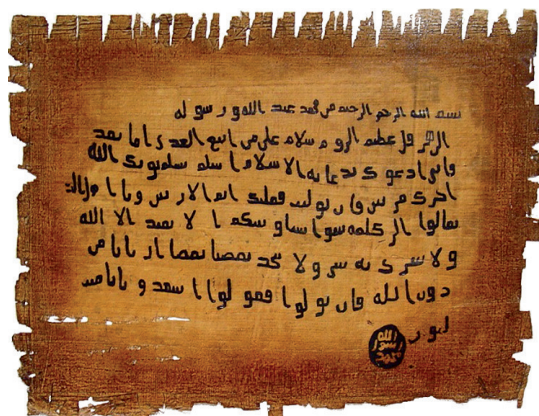 بسم الله الرحمن الرحيم من محمد عبد الله ورسوله
الى هرقل عظيم الروم سلام على من اتبع الهدى اما بعد
فانى ادعوك بدعاية الاسلام اسلم تسلم يوتك الله
اجرك مرتين فان توليت فعليك اثم الاريسين ويا اهل
تعالوا الى كلمة سوا بيننا وبينكم ا لا نعبد الا الله
ولا نشرك به شيئا ولا يتخد بعضنا بعضا اربابا من
دون الله فان تولوا فقولوا اشهدوا بانا مس
لمون
الله
رسول
محمد